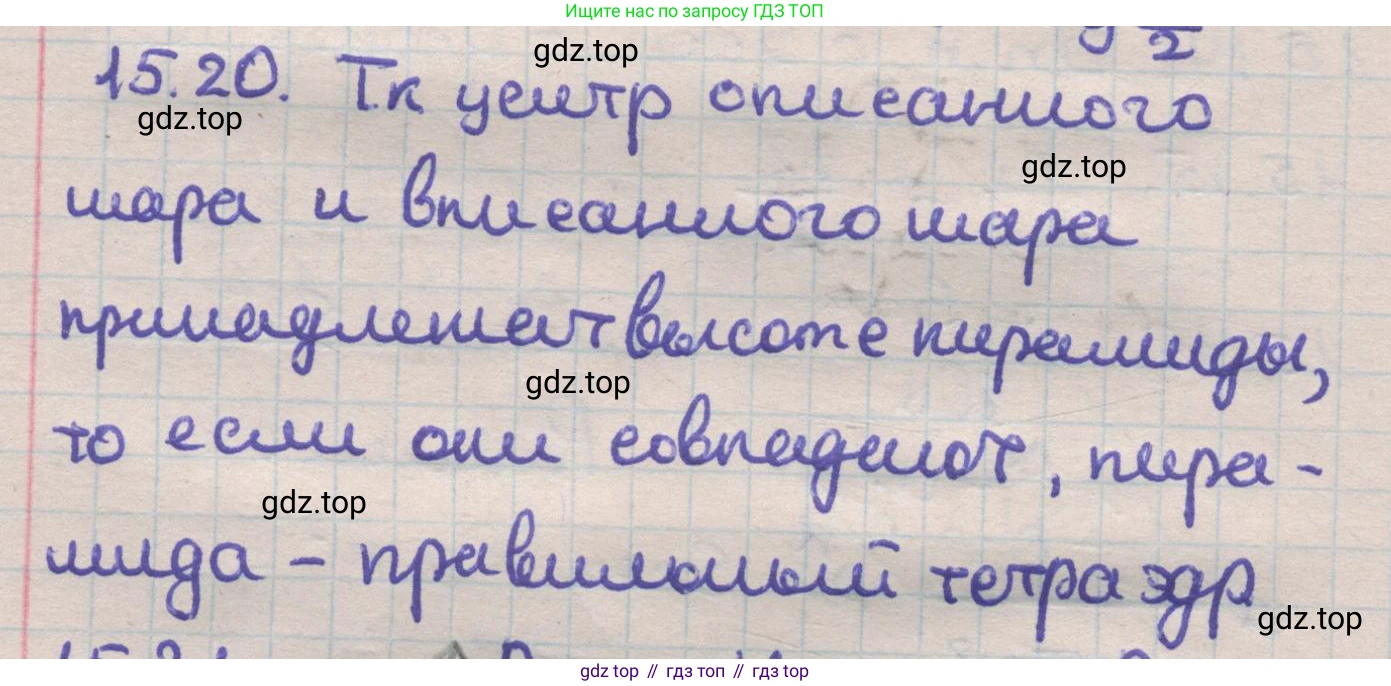 Ищите нас по запросу ГДЗ ТОП
2
15.20. Т.к центр описанного
gdz.top
gdz.top
gdz.top
шара и вписанного шара
принадлежат высоте пирамиды,
gdz.top
то если они совпадают, пира-
gdz.top
мида - правильный тетраэдр
gdz.top
gdz top // гдз топ // гдз top